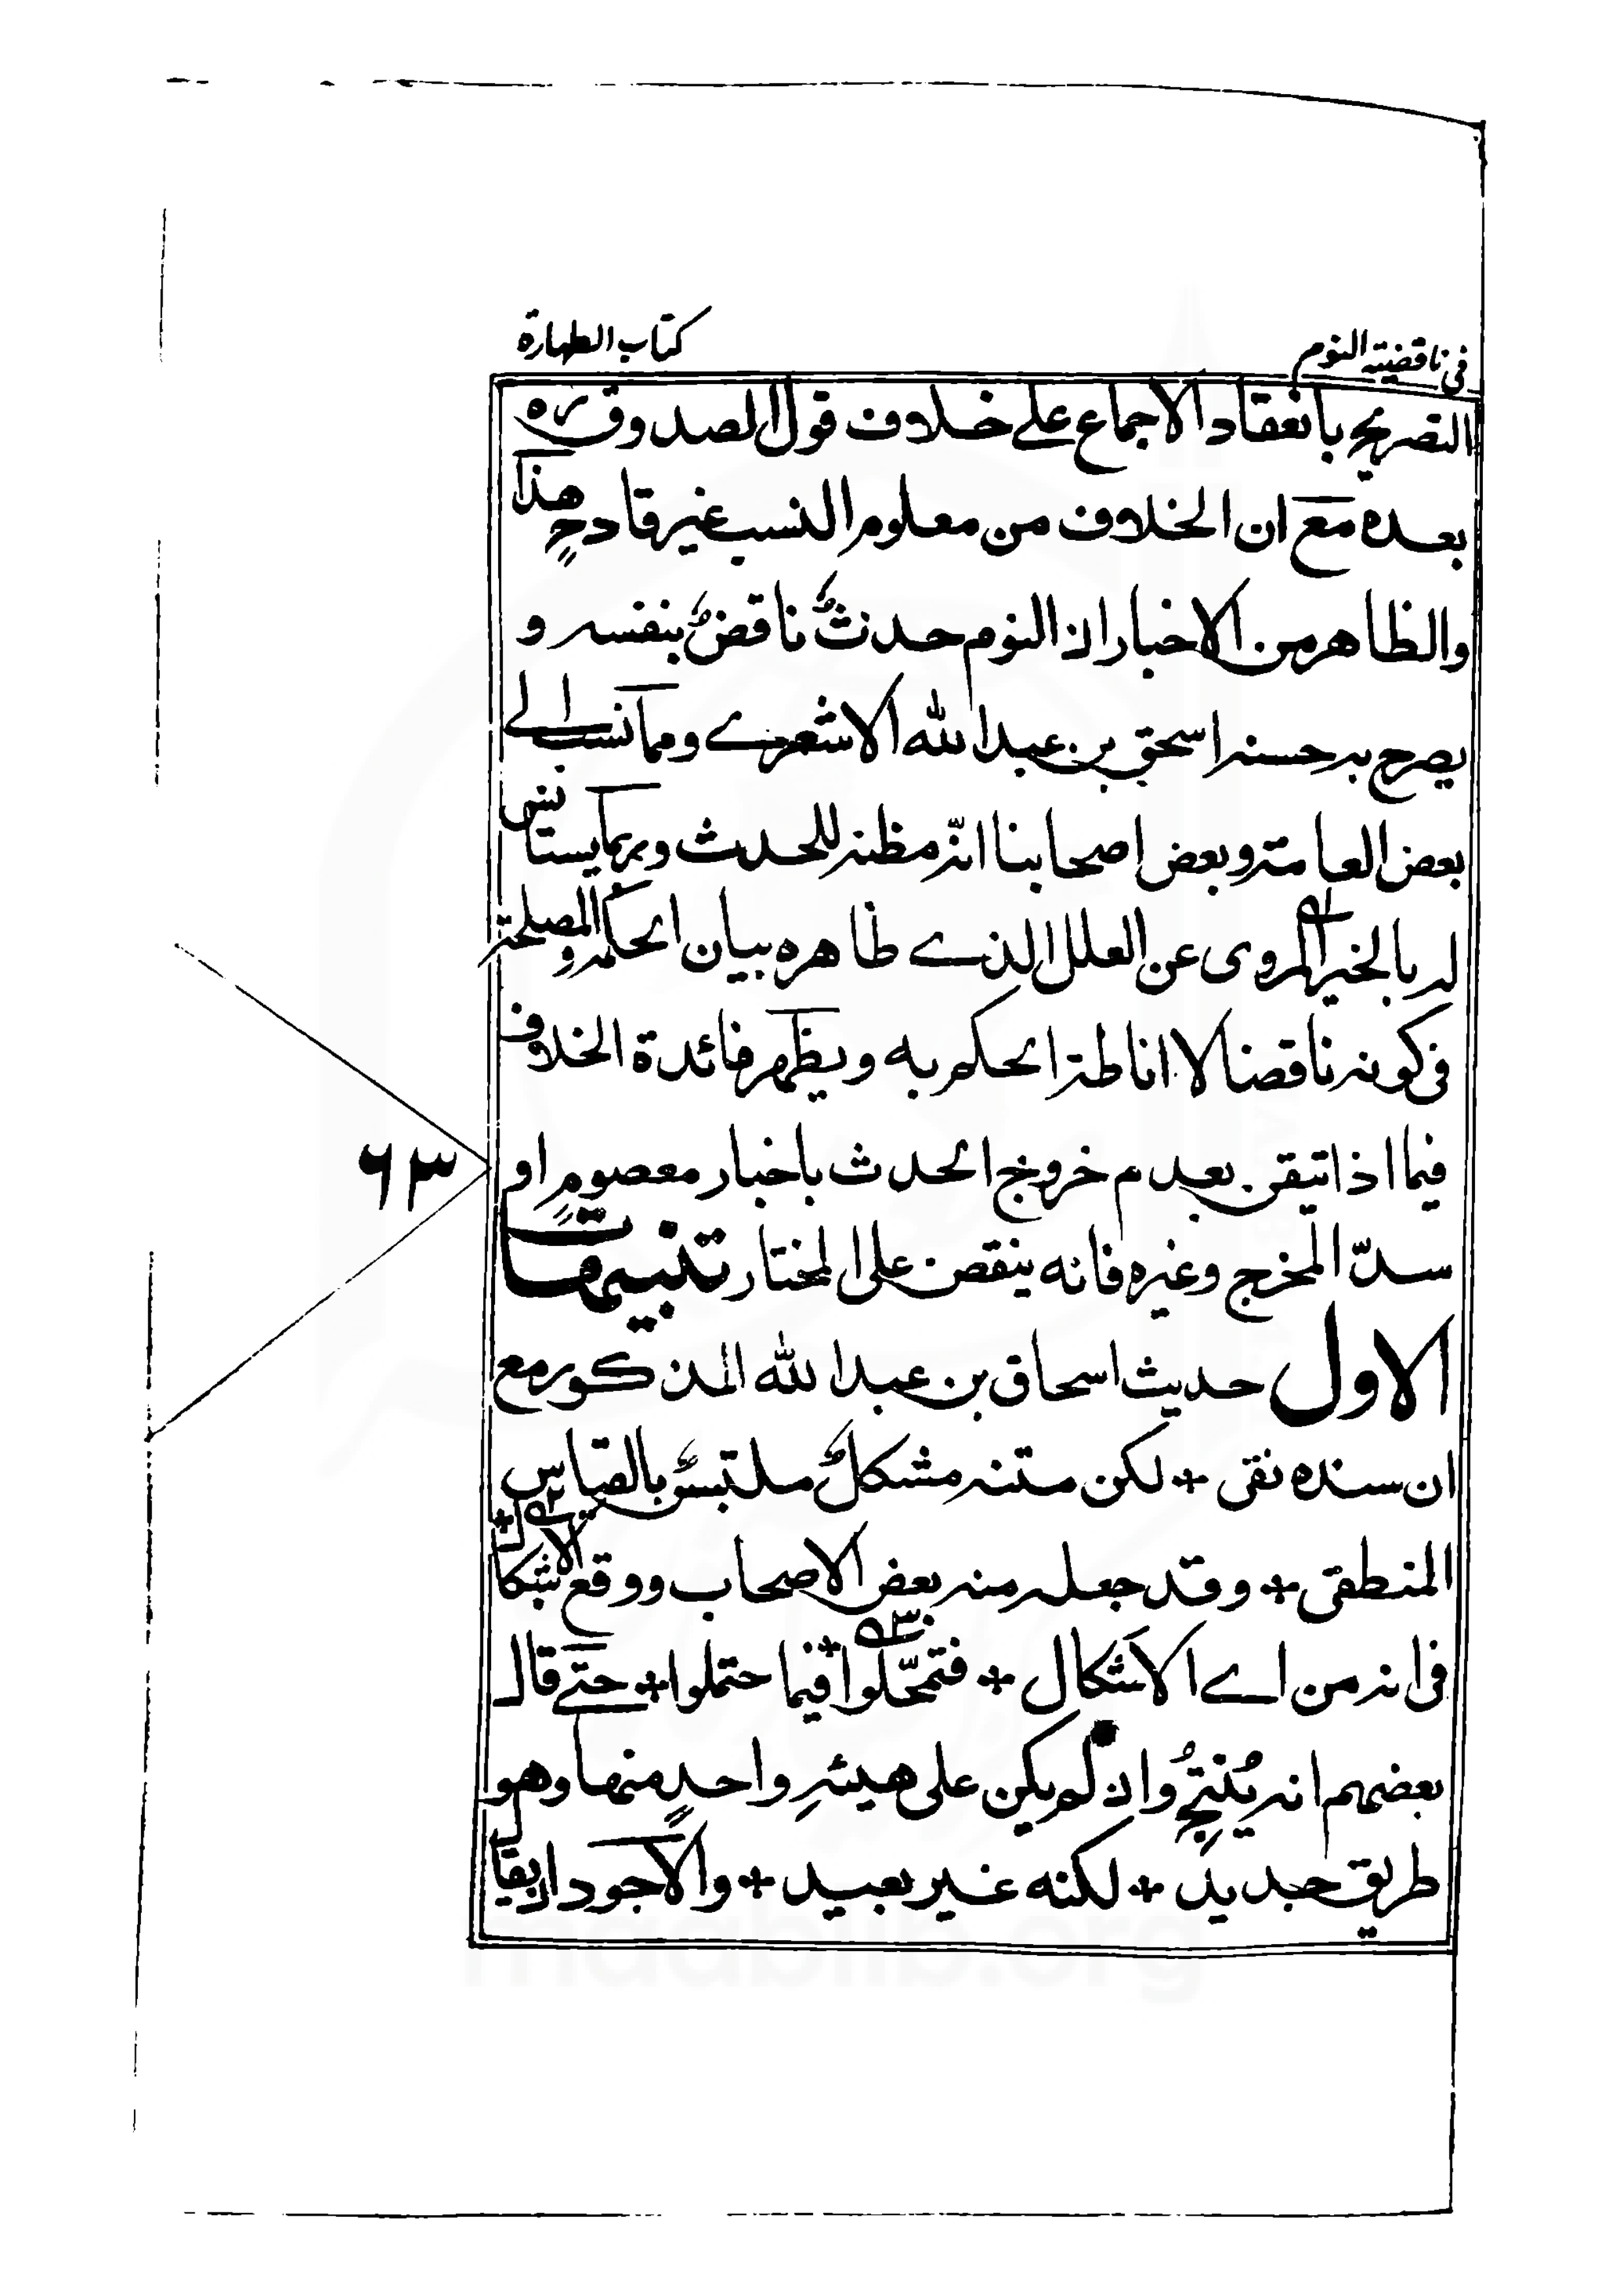 في ناقضية النوم
كتاب الطهارة
التصريح بانعقاد الاجماع على خلاف قول الصدوق ره
بعده مع ان الخلاف من معلوم النسب غير قادحٍ هذا
والظاهر من الاخبار ان النوم حدثٌ ناقضٌ بنفسه و
يصرح به حسنة اسحق بن عبد الله الاشعرے ومما نسب الے
بعض العامة وبعض اصحابنا انّه مظنة للحدث وربما يستانس
له بالخبر المروى عن العلل الذے ظاهره بيان الحكمة والمصلحة
فى كونه ناقضا لا اناطة الحكم به ويظهر فائدة الخلاف
فيما اذا تيقن بعدم خروج الحدث باخبار معصومٍ او
سدّ المخرج وغيره فانه ينقض على المختار تنبيهات
٦٣
الاول حديث اسحاق بن عبد الله المذكور مع
ان سنده نقى + لكن متنه مشكلٌ ملتبسٌ بالقياس
المنطقى + وقد جعله منه بعض الاصحاب ووقع الاشكال +
فى انه من اے الاشكال + فتمحّلوا فيما احتملوا + حتے قال
بعضهم انه يُنتجُ وان لم يكن على هيئةِ واحدٍ منها وهو
طريق جديد + لكنه غير بعيد + والاجود ان يقال